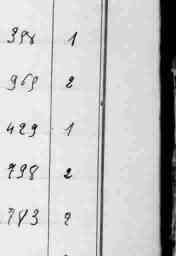 398 1
969 2
429 1
798 2
783 2